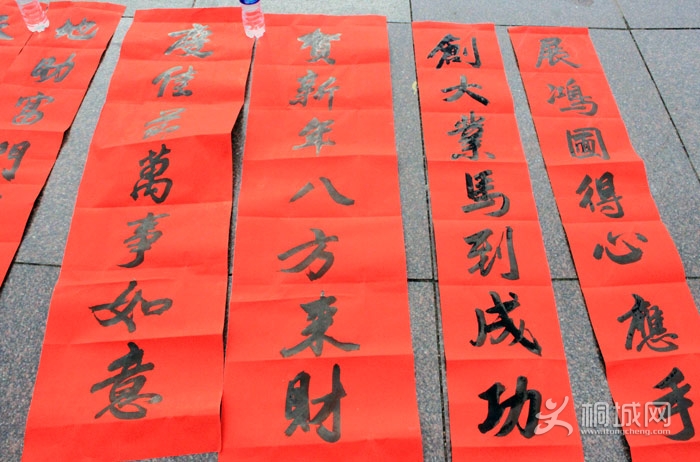 展鴻圖得心應手
創大業馬到成功
賀新年八方来財
慶佳节萬事如意
地助富門
桐城网
itongcheng.com